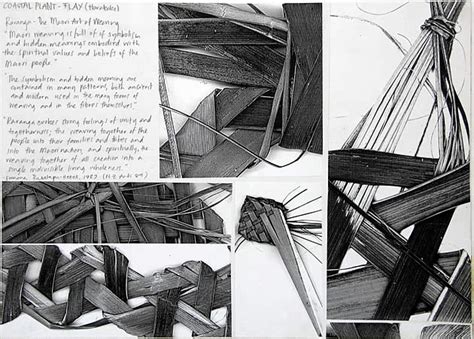 COASTAL PLANT - FLAX (Harakeke)
Raranga - The Maori Art of Weaving
"Maori weaving is full of symbolism
and hidden meanings embodied with
the spiritual values and beliefs of the
Maori people"
"The symbolism and hidden meaning are
contained in many patterns, both ancient
and modern used in the many forms of
weaving and in the fibres themselves"
"Raranga evokes strong feelings of unity and
togetherness; the weaving together of the
people into their families and tribes and
into the Maori nation, and spiritually, the
weaving together of all creation into a
single indivisible living wholeness."
1987